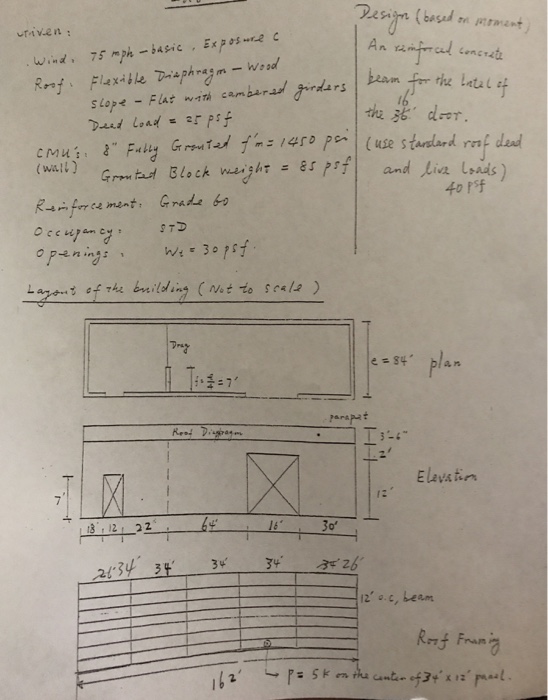 Given:
Wind, 75 mph - basic, Exposure C
Roof, Flexible Diaphragm - Wood
Slope - Flat with cambered girders
Dead Load = 25 psf
CMU's, 8" Fully Grouted f'm = 1450 psi
(wall) Grouted Block weight = 85 psf
Reinforcement, Grade 60
Occupancy: STD
Openings, Wt = 30 psf.
Design (based on moment)
An reinforced concrete
beam for the lintel of
16
the 36' door.
(use standard roof dead
and live loads)
40 psf
Layout of the building (Not to scale)
Drag
= 7'
= 84' plan
parapet
Roof Diaphragm
3'-6"
2'
Elevation
7'
12'
18' 12' 22' 64' 16' 30'
26' 34' 34' 34' 34' 34' 26'
12' o.c, beam
Roof Framing
162'
P = 5k on the center of 34' x 12' panel.